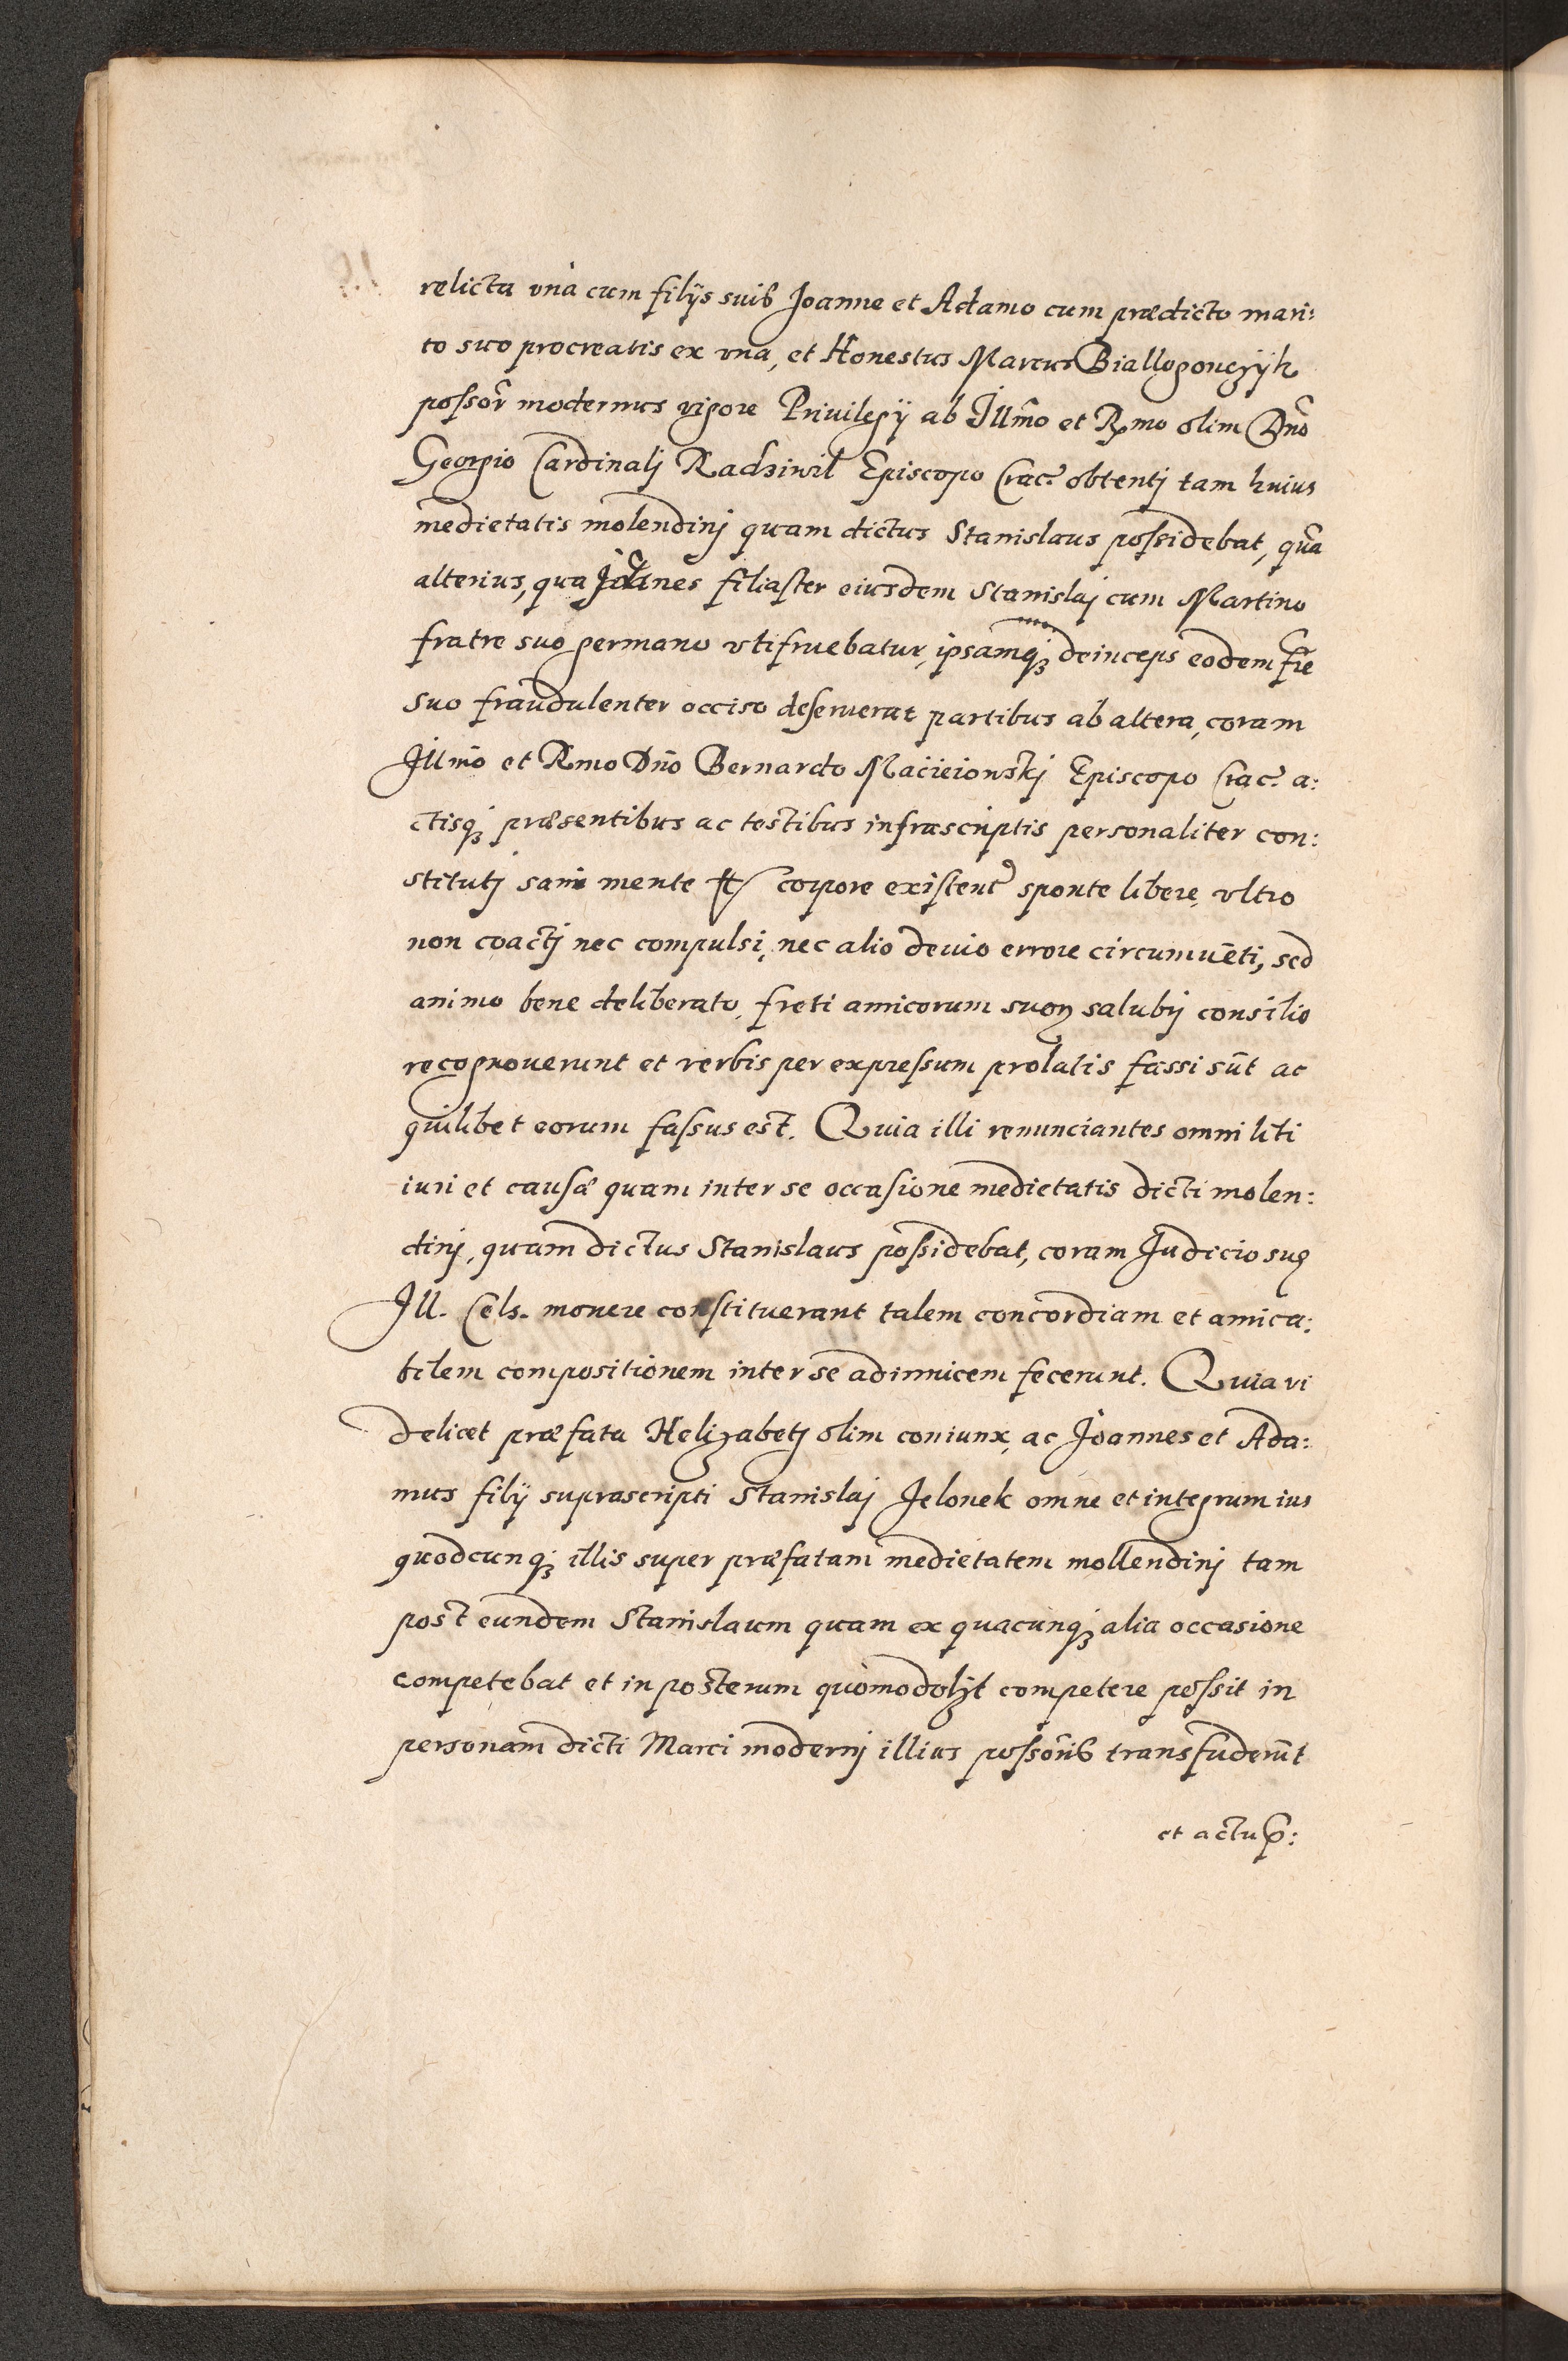 relicta vnà cum filijs suis Joanne et Adamo cum prædicto mari:
to suo procreatis ex vna, et Honestus Marcus Biallogonczyk
possor̃ modernus vigore Priuilegij ab Illm̃o et Rmo olim Dñò
Georgio Cardinalj Radziwil Episcopo Crac. obtentj tam huius
medietatis molendinj quam dictus Stanislaus possidebat, quã
alterius, qua Joãnes filiaster eiusdem Stanislaj cum Martino
fratre suo germano vtifruebatur, ipsamq; deinceps eodem frẽ
suo fraudulenter occiso deseruerat partibus ab altera, coram
Illmõ et Rmo Dño Bernardo Macieiowskj Episcopo Crac. a:
ctisq; præsentibus ac testibus infrascriptis personaliter con:
stitutj sani mente et corpore existent sponte libere, vltro
non coactj nec compulsi, nec alio deuio errore circumuẽti, sed
animo bene deliberato, freti amicorum suoꝝ salubrj consilio
recognouerunt et verbis per expressum prolatis fassi sũt ac
quilibet eorum fassus est. Quia illi renunciantes omni liti
iuri et causæ quam inter se occasione medietatis dicti molen:
dinj, quam dictus Stanislaus possidebat, coram Judicio suę
Ill. Cels. monere constituerant talem concordiam et amica:
bilem compositionem inter se adinuicem fecerunt. Quia vi
delicet præfata Helizabetj olim coniunx, ac Joannes et Ada:
mus filij suprascripti Stanislaj Jelonek omne et integrum ius
quodcunq; illis super præfatam medietatem mollendinj tam
post eundem Stanislaum quam ex quacunq; alia occasione
competebat et in posterum quomodolzt competere possit in
personam dicti Marci modernj illius possoris transfuderũt
et actu p: